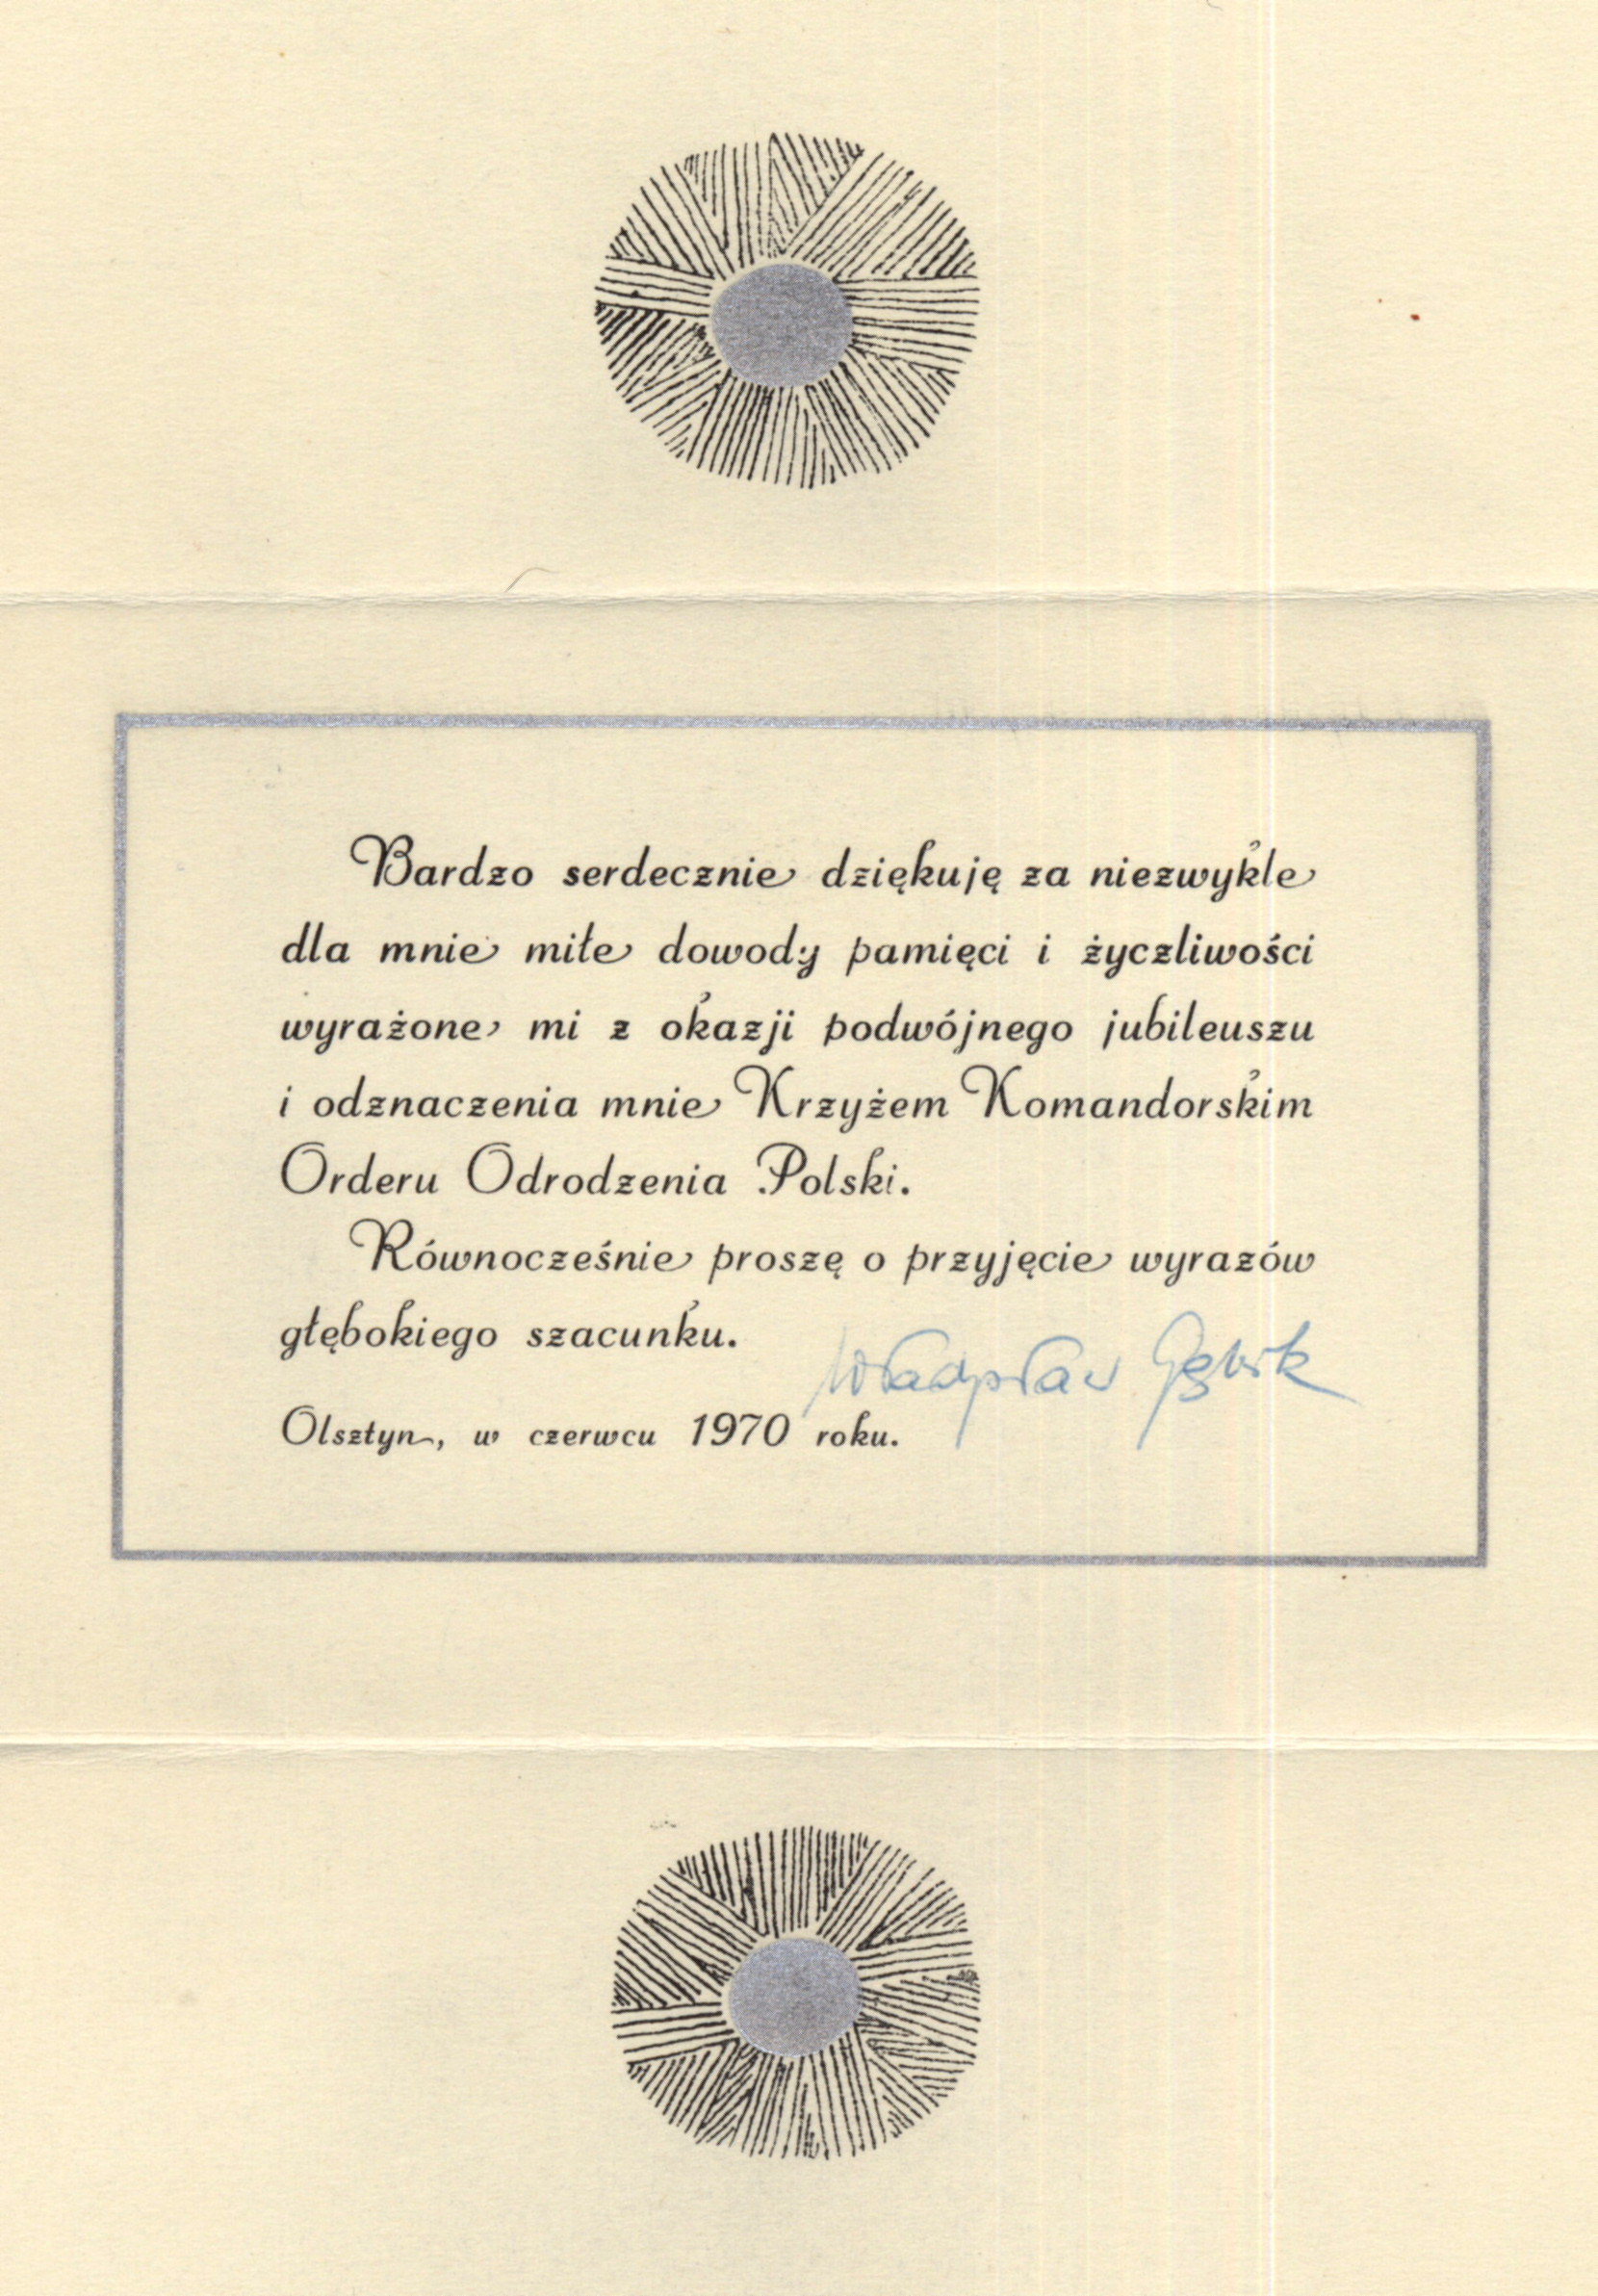 Bardzo serdecznie dziękuję za niezwykle
dla mnie miłe dowody pamięci i życzliwości
wyrażone mi z okazji podwójnego jubileuszu
i odznaczenia mnie Krzyżem Komandorskim
Orderu Odrodzenia Polski.
Równocześnie proszę o przyjęcie wyrazów
głębokiego szacunku.
Władysław Gębik
Olsztyn, w czerwcu 1970 roku.